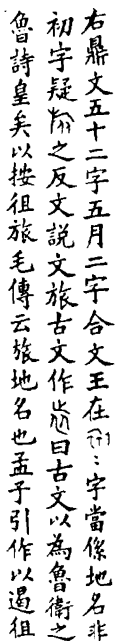 右鼎文五十二字五月二字合文王在⺀字當係地名非
初字疑之反文說文旅古文作曰古文以為魯衛之
魯詩皇矣以按徂旅毛傳云旅地名也孟子引作以遏徂